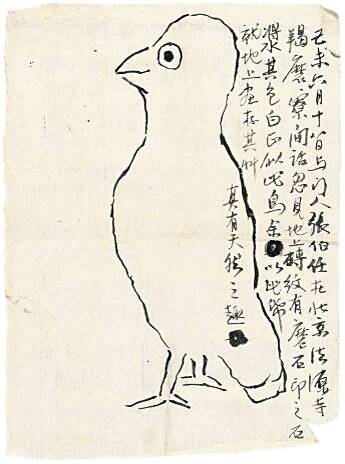 己未六月十八日与门人張伯任在北京法源寺
羯磨寮閒話忽見地上磚紋有磨石印之石
漿其色白正似此鳥余以此帋
就地上画存其艸
真有天然之趣